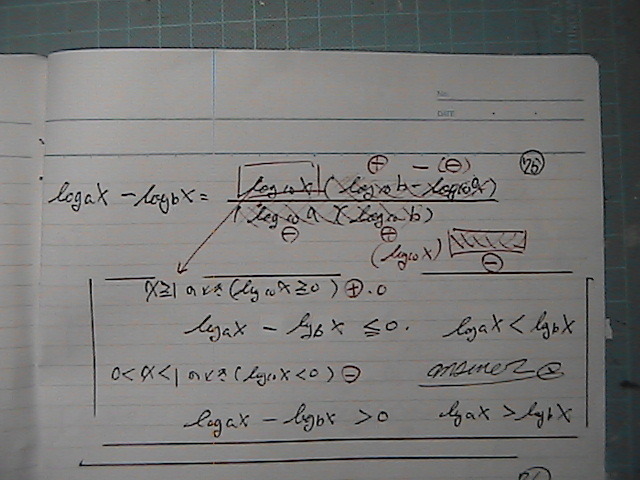 No.
DATE
⊕ -(⊖) 26
logaX - logbX = log10X (log10b - log10a) / (log10a)(log10b)
⊖ ⊕
(log10X) ⊖
X≧1のとき(log10X≧0) ⊕.0
logaX - logbX ≦0. logaX < logbX
0<X<1のとき(log10X<0) ⊖ answer
logaX - logbX >0 logaX > logbX